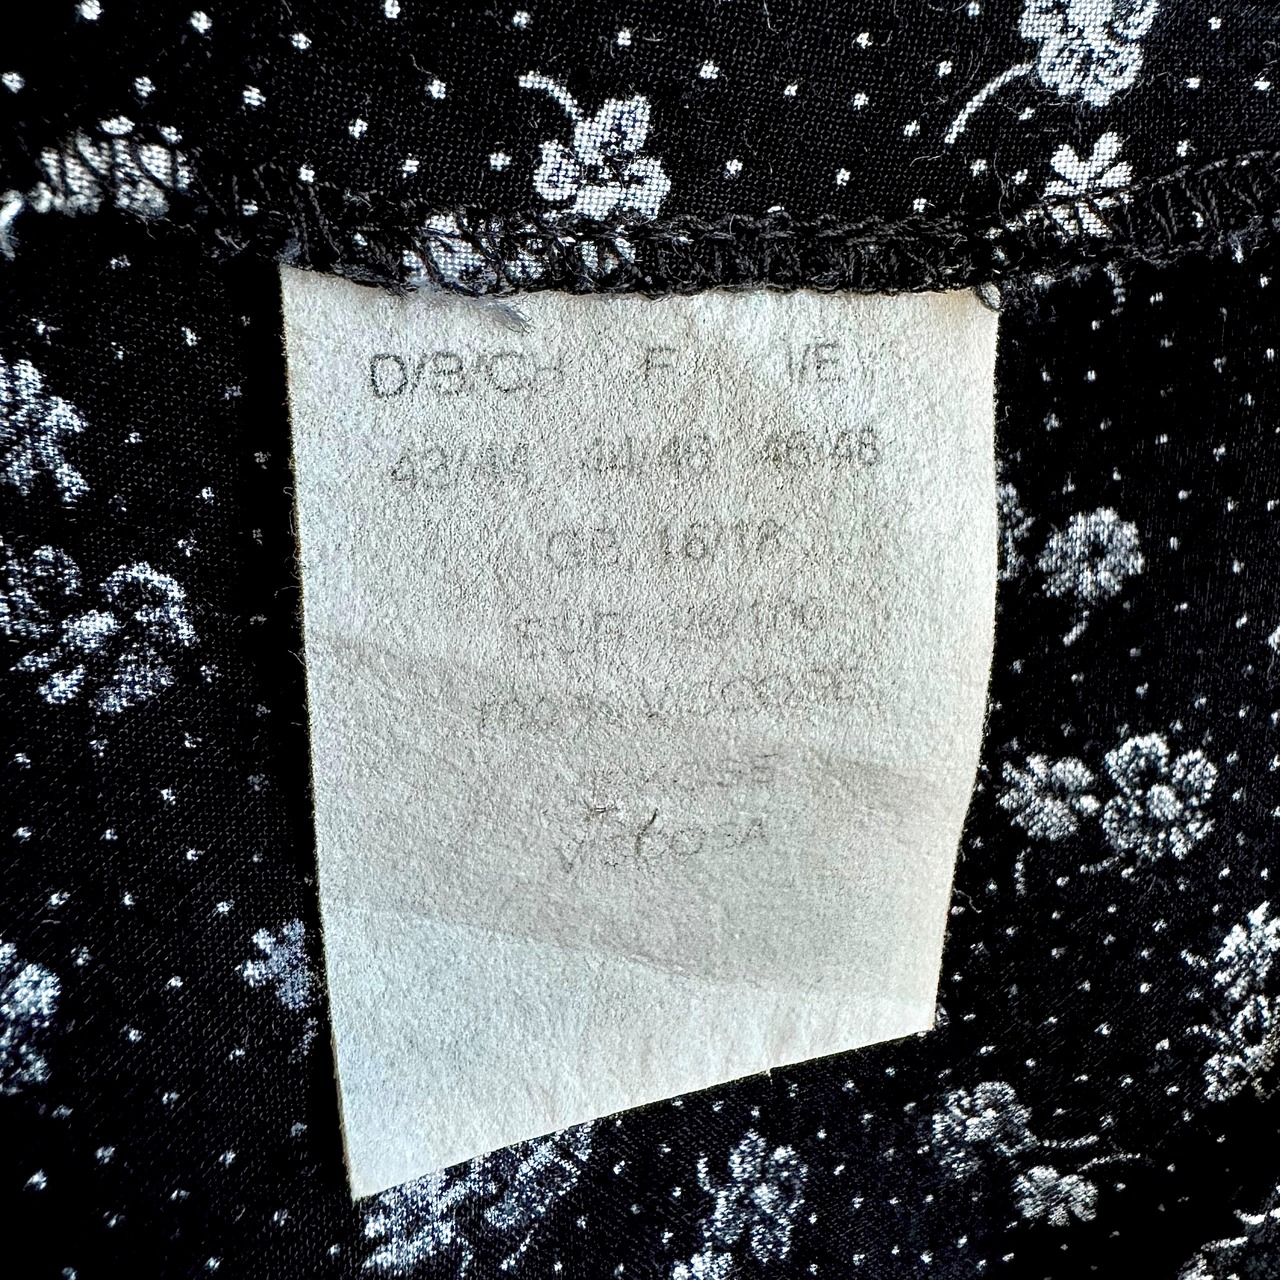 D/B/CH F I/E
43/44 44/46 46/48
GB 16/18
EUR
100% VISCOSE
VISCOSA